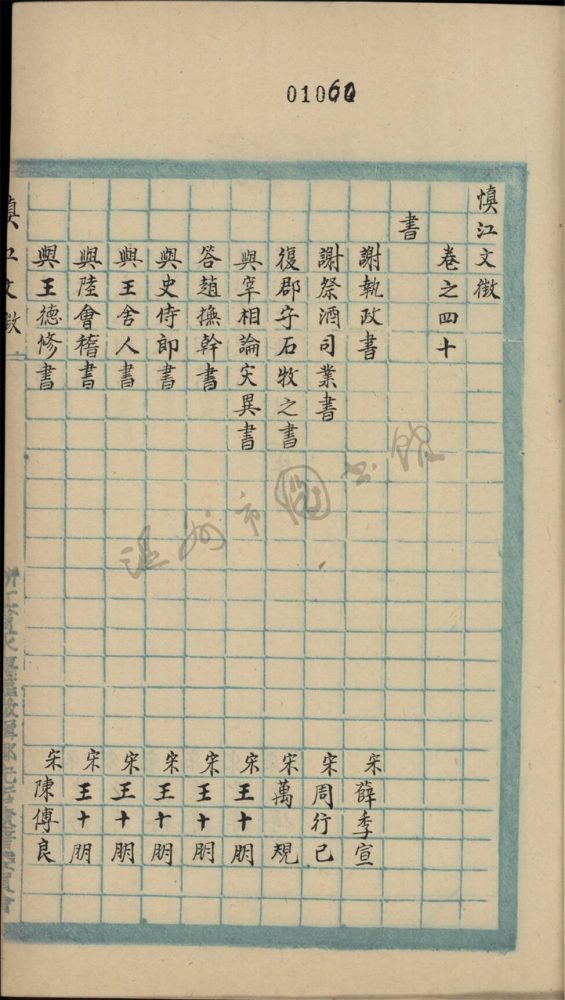 01060
慎江文徵
卷之四十
書
謝執政書 宋 薛季宣
謝祭酒司業書 宋 周行己
復郡守石牧之書 宋 萬規
與宰相論災異書 宋 王十朋
答趙撫幹書 宋 王十朋
與史侍郎書 宋 王十朋
與王舍人書 宋 王十朋
與陸會稽書 宋 王十朋
與王德修書 宋 陳傅良
慎江文徵
溫州市圖书館